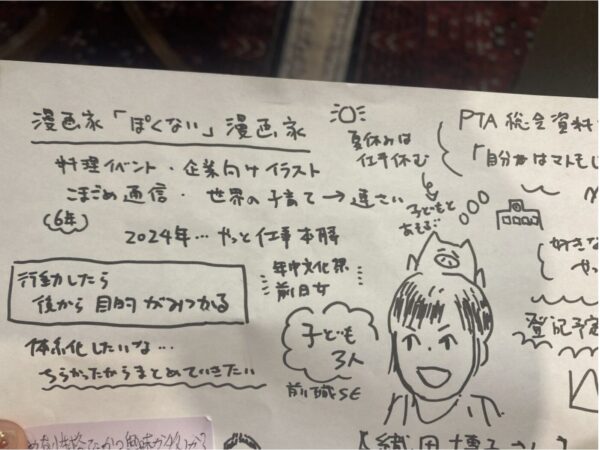 漫画家「ぽくない」漫画家
料理イベント・企業向けイラスト
こまごめ通信・世界の子育て→連さい
(6年)
2024年…やっと仕事本腰
行動したら
後から目的がみつかる
体系化したいな…
ちらかったからまとめていきたい
夏休みは
仕事休む
子どもと
あそぶ…
年中文化祭
前日女
子ども
3人
前職SE
PTA総会資料
「自分がはマトモ
好きな
やっ
登記予定
【織田博子